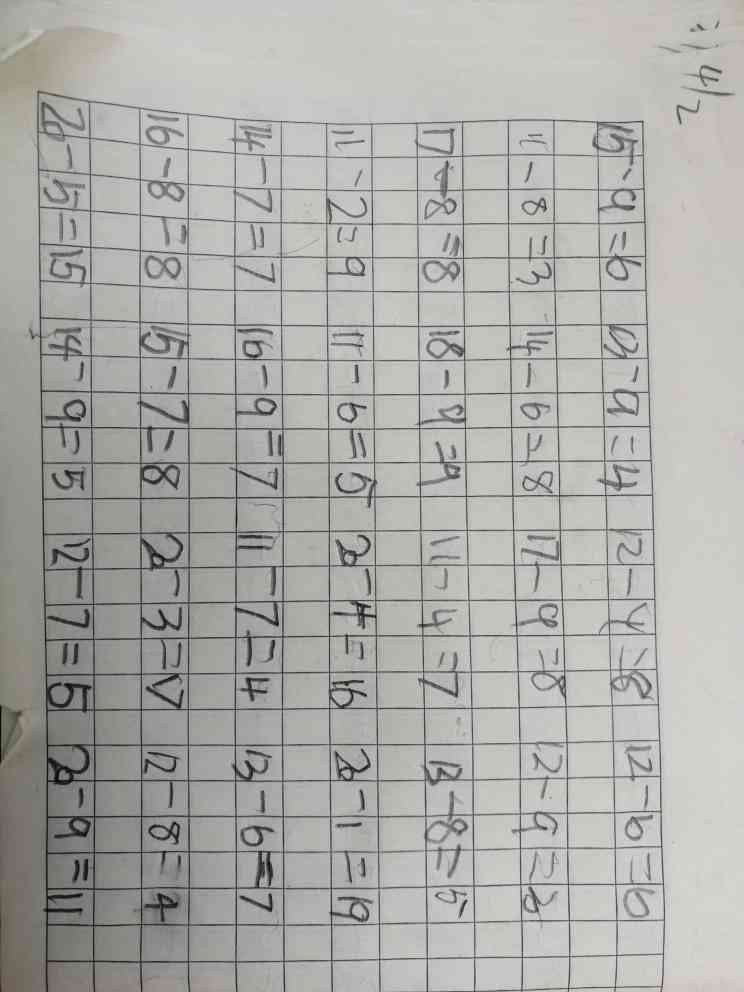 4/2
15-9=6 13-9=4 12-4=8 12-6=6
11-8=3 14-6=8 17-9=8 12-9=3
17-8=8 18-9=9 11-4=7 13-8=5
11-2=9 11-6=5 20-4=16 20-1=19
14-7=7 16-9=7 11-7=4 13-6=7
16-8=8 15-7=8 20-3=17 12-8=4
20-15=15 14-9=5 12-7=5 20-9=11